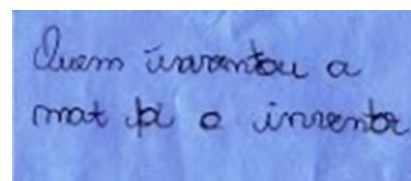 Quem invventou a
mat foi o inventor